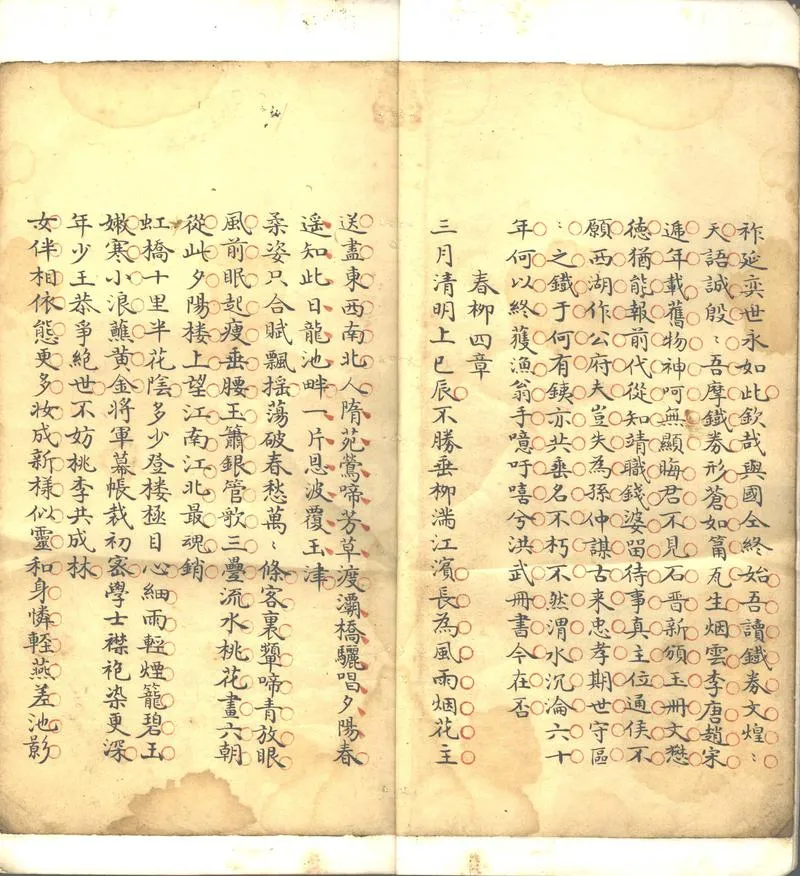 祚延奕世永如此欽哉與國仝終始吾讀鐵券文煌﹕
天語誠殷﹕吾摩鐵券形蒼如篇瓦生烟雲李唐趙宋
遞年載舊物神呵無顯晦君不見石晋新頒玉冊文懋
徳猶能報前代從知請職錢婆留待事真主位通侯不
願西湖作公府夫豈失為孫仲謀古来忠孝期世守區
﹕之鐵于何有銕亦共垂名不朽不然渭水沉淪六十
年何以終獲漁翁手噫吁嘻兮洪武冊書今在否
春柳四章
三月清明上巳辰不勝垂柳滿江濱長為風雨烟花主
送盡東西南北人隋苑鶯啼芳草渡灞橋驪唱夕陽春
遥知此日龍池畔一片恩波覆玉津
柔姿只合賦飄摇蕩破春愁萬﹕條客裏顰啼青放眼
風前眠起瘦垂腰玉簫銀管歌三疊流水桃花畫六朝
從此夕陽楼上望江南江北最魂銷
虹橋十里半花陰多少登楼極目心細雨輕煙籠碧玉
嫩寒小浪蘸黄金將軍幕帳栽初密學士襟袍染更深
年少王恭爭絶世不妨桃李共成林
女伴相依態更多妝成新様似靈和身憐輕燕差池影